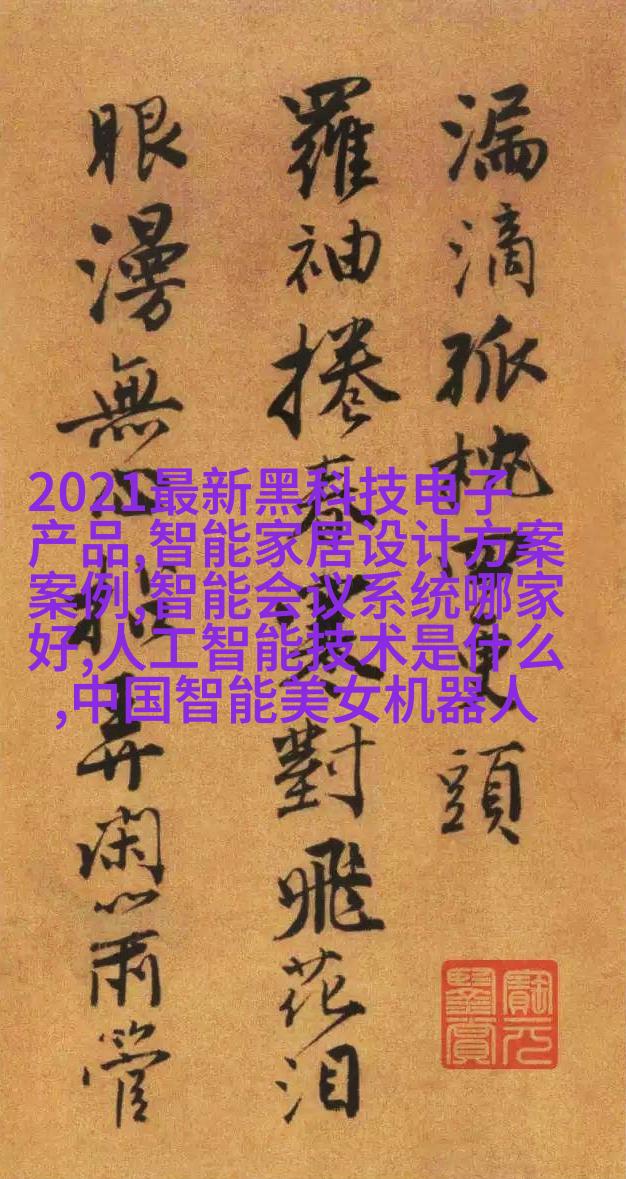 漏滴孤枕四更頭
羅袖捲春寒對飛花泪
眼漫無心弄閑管
2021最新黑科技电子
产品,智能家居设计方案
案例,智能会议系统哪家
好,人工智能技术是什么
,中国智能美女机器人